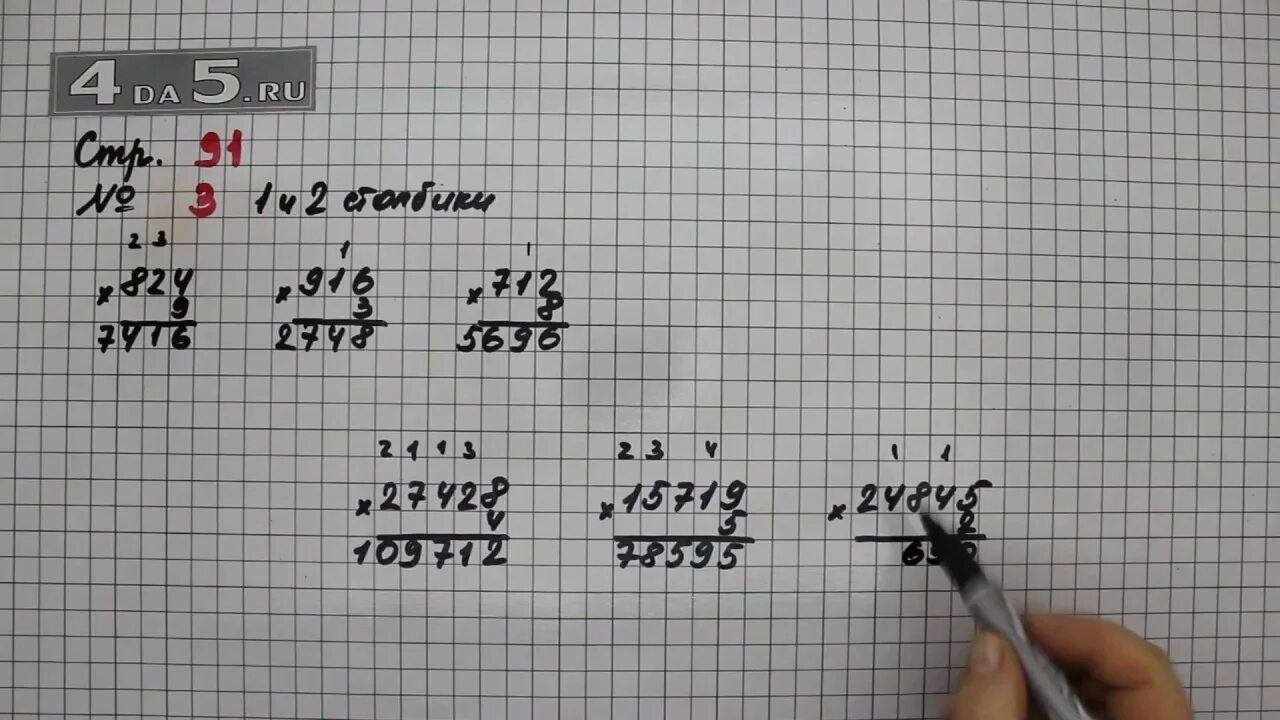 4 DA 5.RU
Стр. 91
№ 3 1 и 2 столбики
2 3
× 824
9
7416
1
× 916
3
2748
1
× 712
8
5696
2 1 1 3
× 27428
4
109712
2 3 4
× 15719
5
78595
1 1
× 24845
2
690